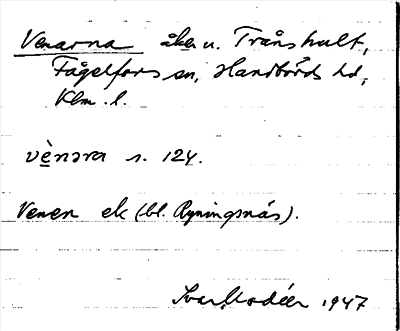 Venarna åker u. Trånshult,
Fågelfors sn, Handbörds hd,
Klm. l.
vènɘra s. 124.
Venen ek (bl. Ryningsnäs).
Ivar Modéer 1947